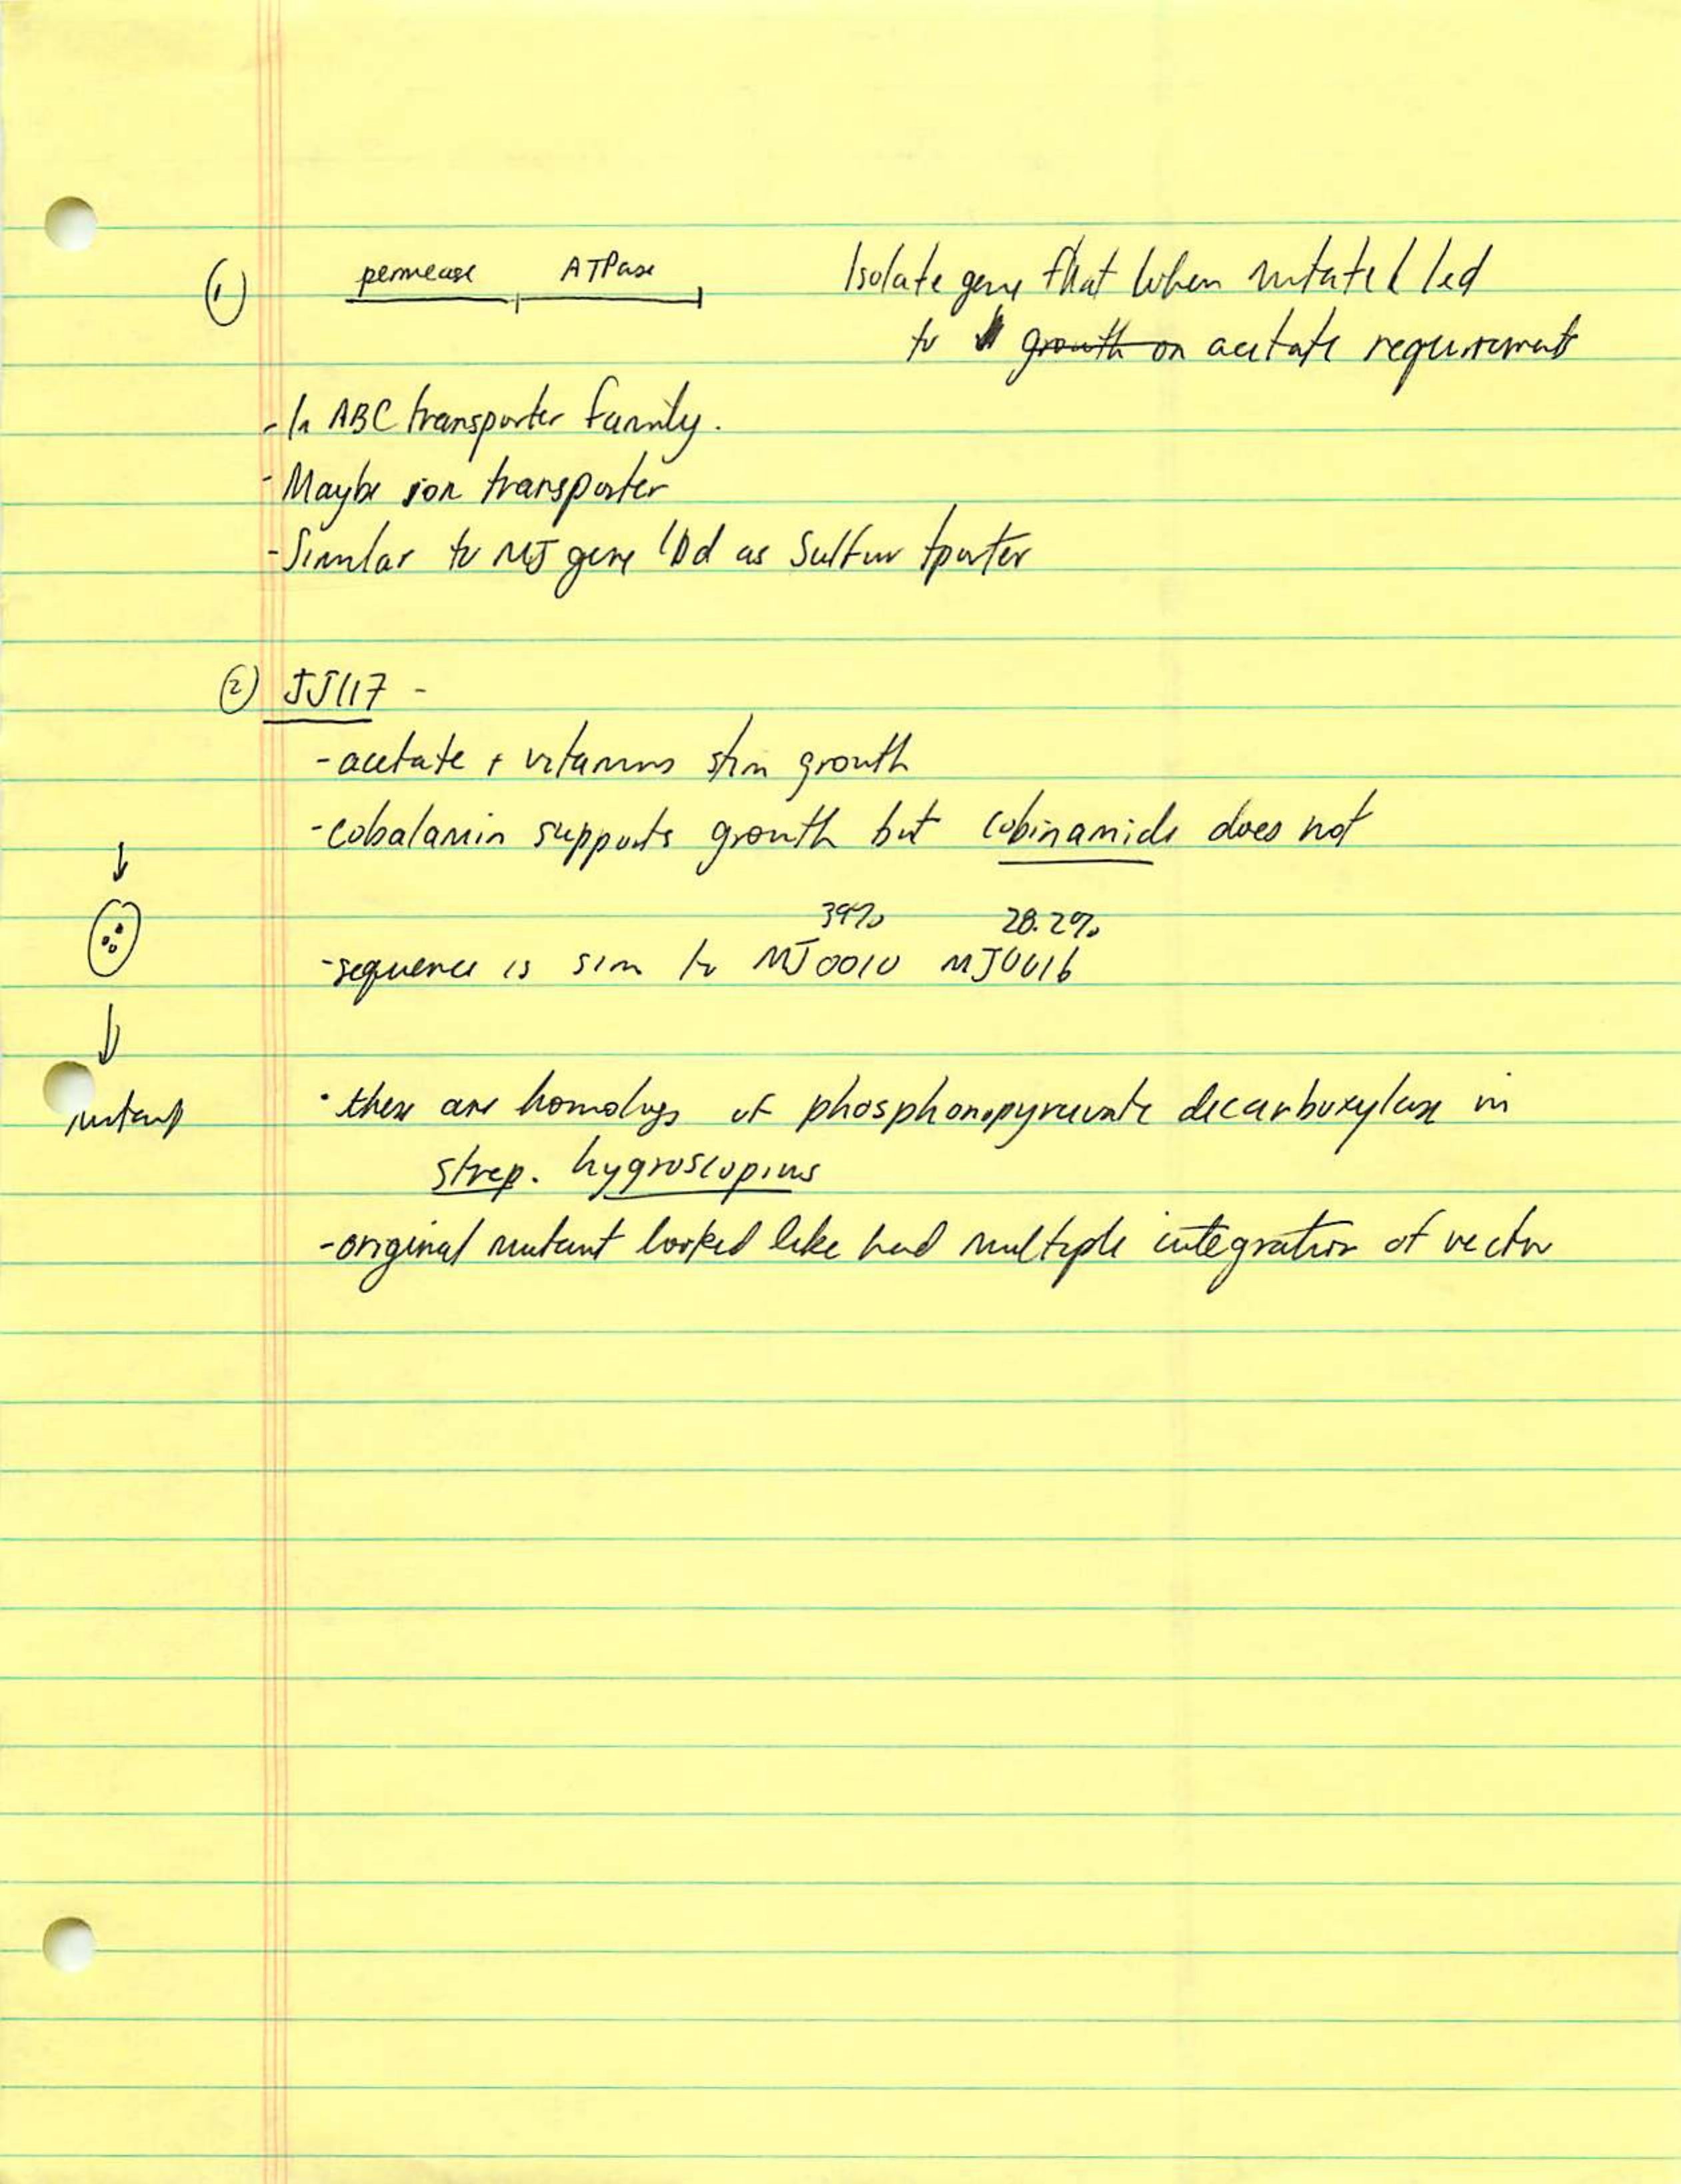 ① permease ATPase Isolate gene that when mutated led
to growth on acetate requirement
- In ABC transporter family.
- Maybe ion transporter
- Similar to MJ gene IDd as Sulfur tporter
② JJ117 -
- acetate + vitamins stim growth
- cobalamin supports growth but cobinamide does not
39% 28.2%
- sequence is sim to MJ0010 MJ0016
mutant
· these are homologs of phosphonopyruvate decarboxylase in
strep. hygroscopius
- original mutant looked like had multiple integration of vector